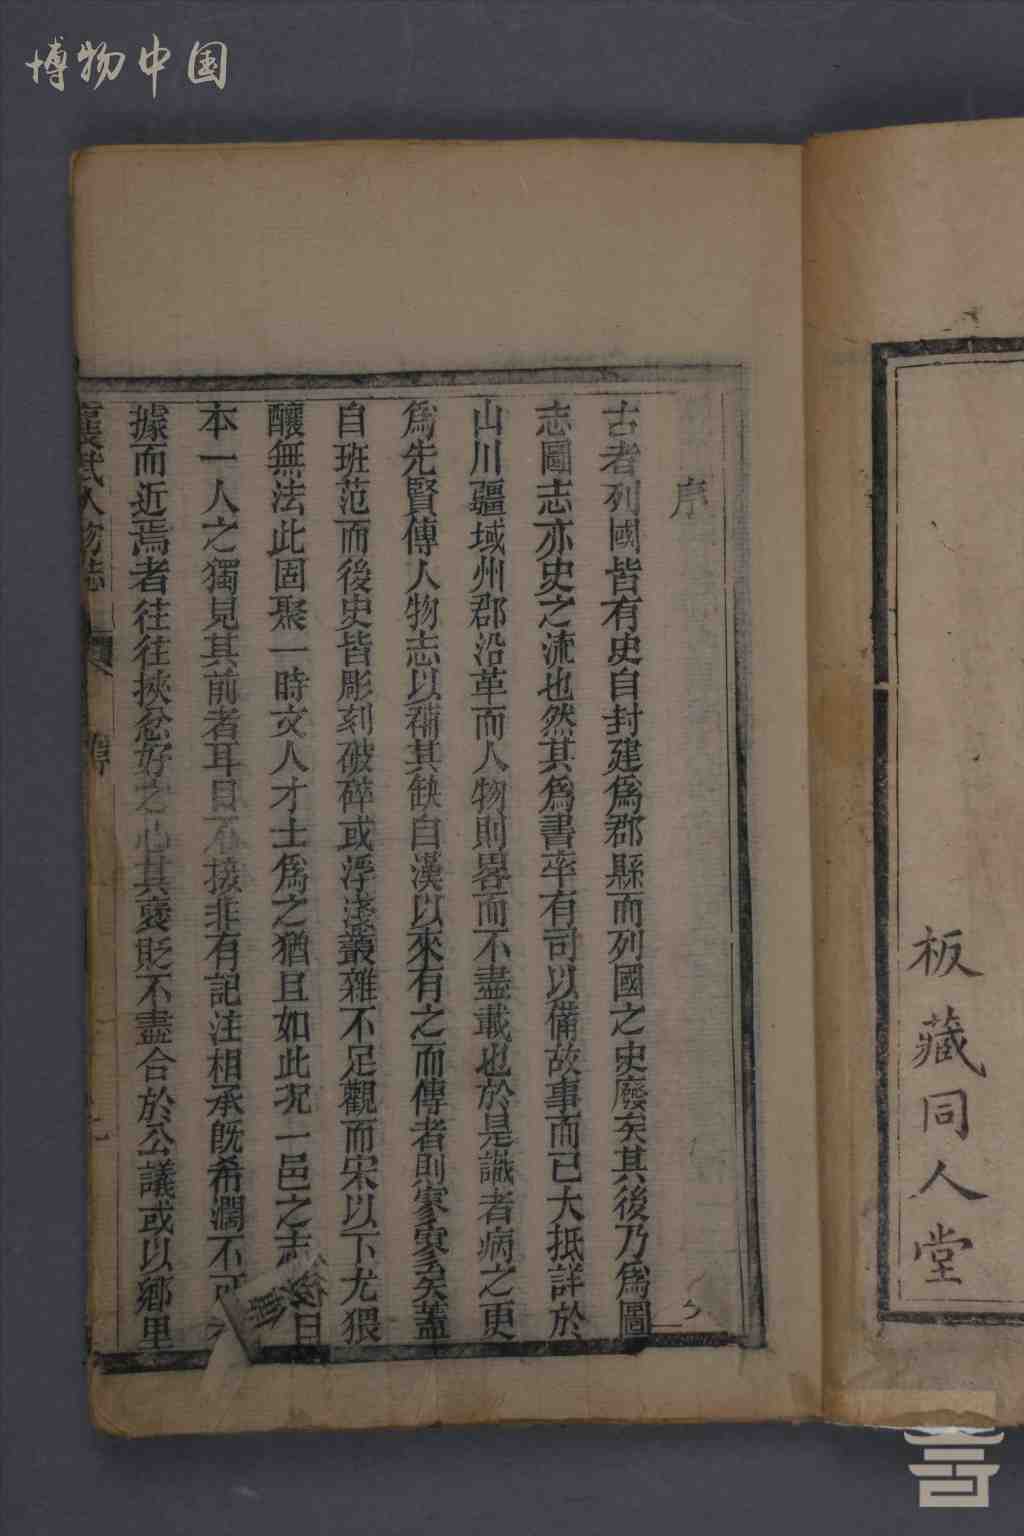 博物中国
板藏同人堂
序
古者列國皆有史自封建爲郡縣而列國之史廢矣其後乃爲圖
志圖志亦史之流也然其爲書率有司以備故事而已大抵詳於
山川疆域州郡沿革而人物則畧而不盡載也於是識者病之更
爲先賢傳人物志以補其缺自漢以來有之而傳者則寥寥矣蓋
自班范而後史皆彫刻破碎或浮淺叢雜不足觀而宋以下尤猥
釀無法此固聚一時文人才士爲之猶且如此况一邑之志 日
本一人之獨見其前者耳目不接非有記注相承旣希濶不可
據而近焉者往往挾忿好之心其褒貶不盡合於公議或以鄉里
襄武人物志 序